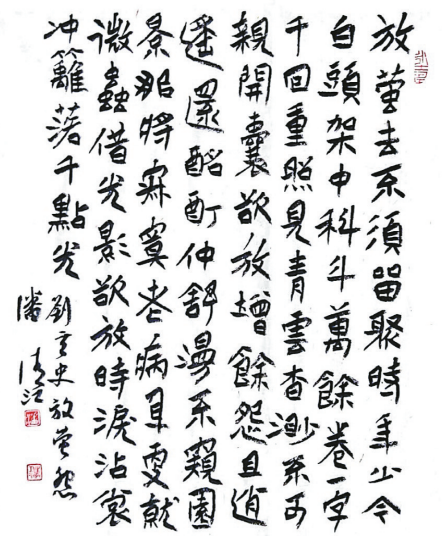 放萤去不須留聚時年少今
白頭架中科斗萬餘卷一字
千回重照見青雲杳渺不可
親開囊欲放增餘怨且逍
遥還酩酊仲舒漫不窺園
景那將寂寞老病身更就
微蟲借光影欲放時淚沾裳
冲籬落千點光
劉言史放萤怨
潘清江